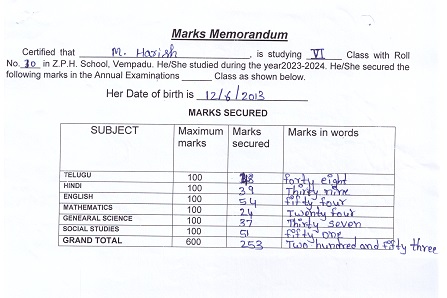 Marks Memorandum
Certified that M. Harish, is studying VI Class with Roll
No. 30 in Z.P.H. School, Vempadu. He/She studied during the year2023-2024. He/She secured the
following marks in the Annual Examinations ______ Class as shown below.
Her Date of birth is 12/6/2013
MARKS SECURED
SUBJECT Maximum marks Marks secured Marks in words
TELUGU 100 48 forty eight
HINDI 100 39 Thirty nine
ENGLISH 100 54 fifty four
MATHEMATICS 100 24 Twenty four
GENEARAL SCIENCE 100 37 Thirty seven
SOCIAL STUDIES 100 51 fifty one
GRAND TOTAL 600 253 Two hundred and fifty three